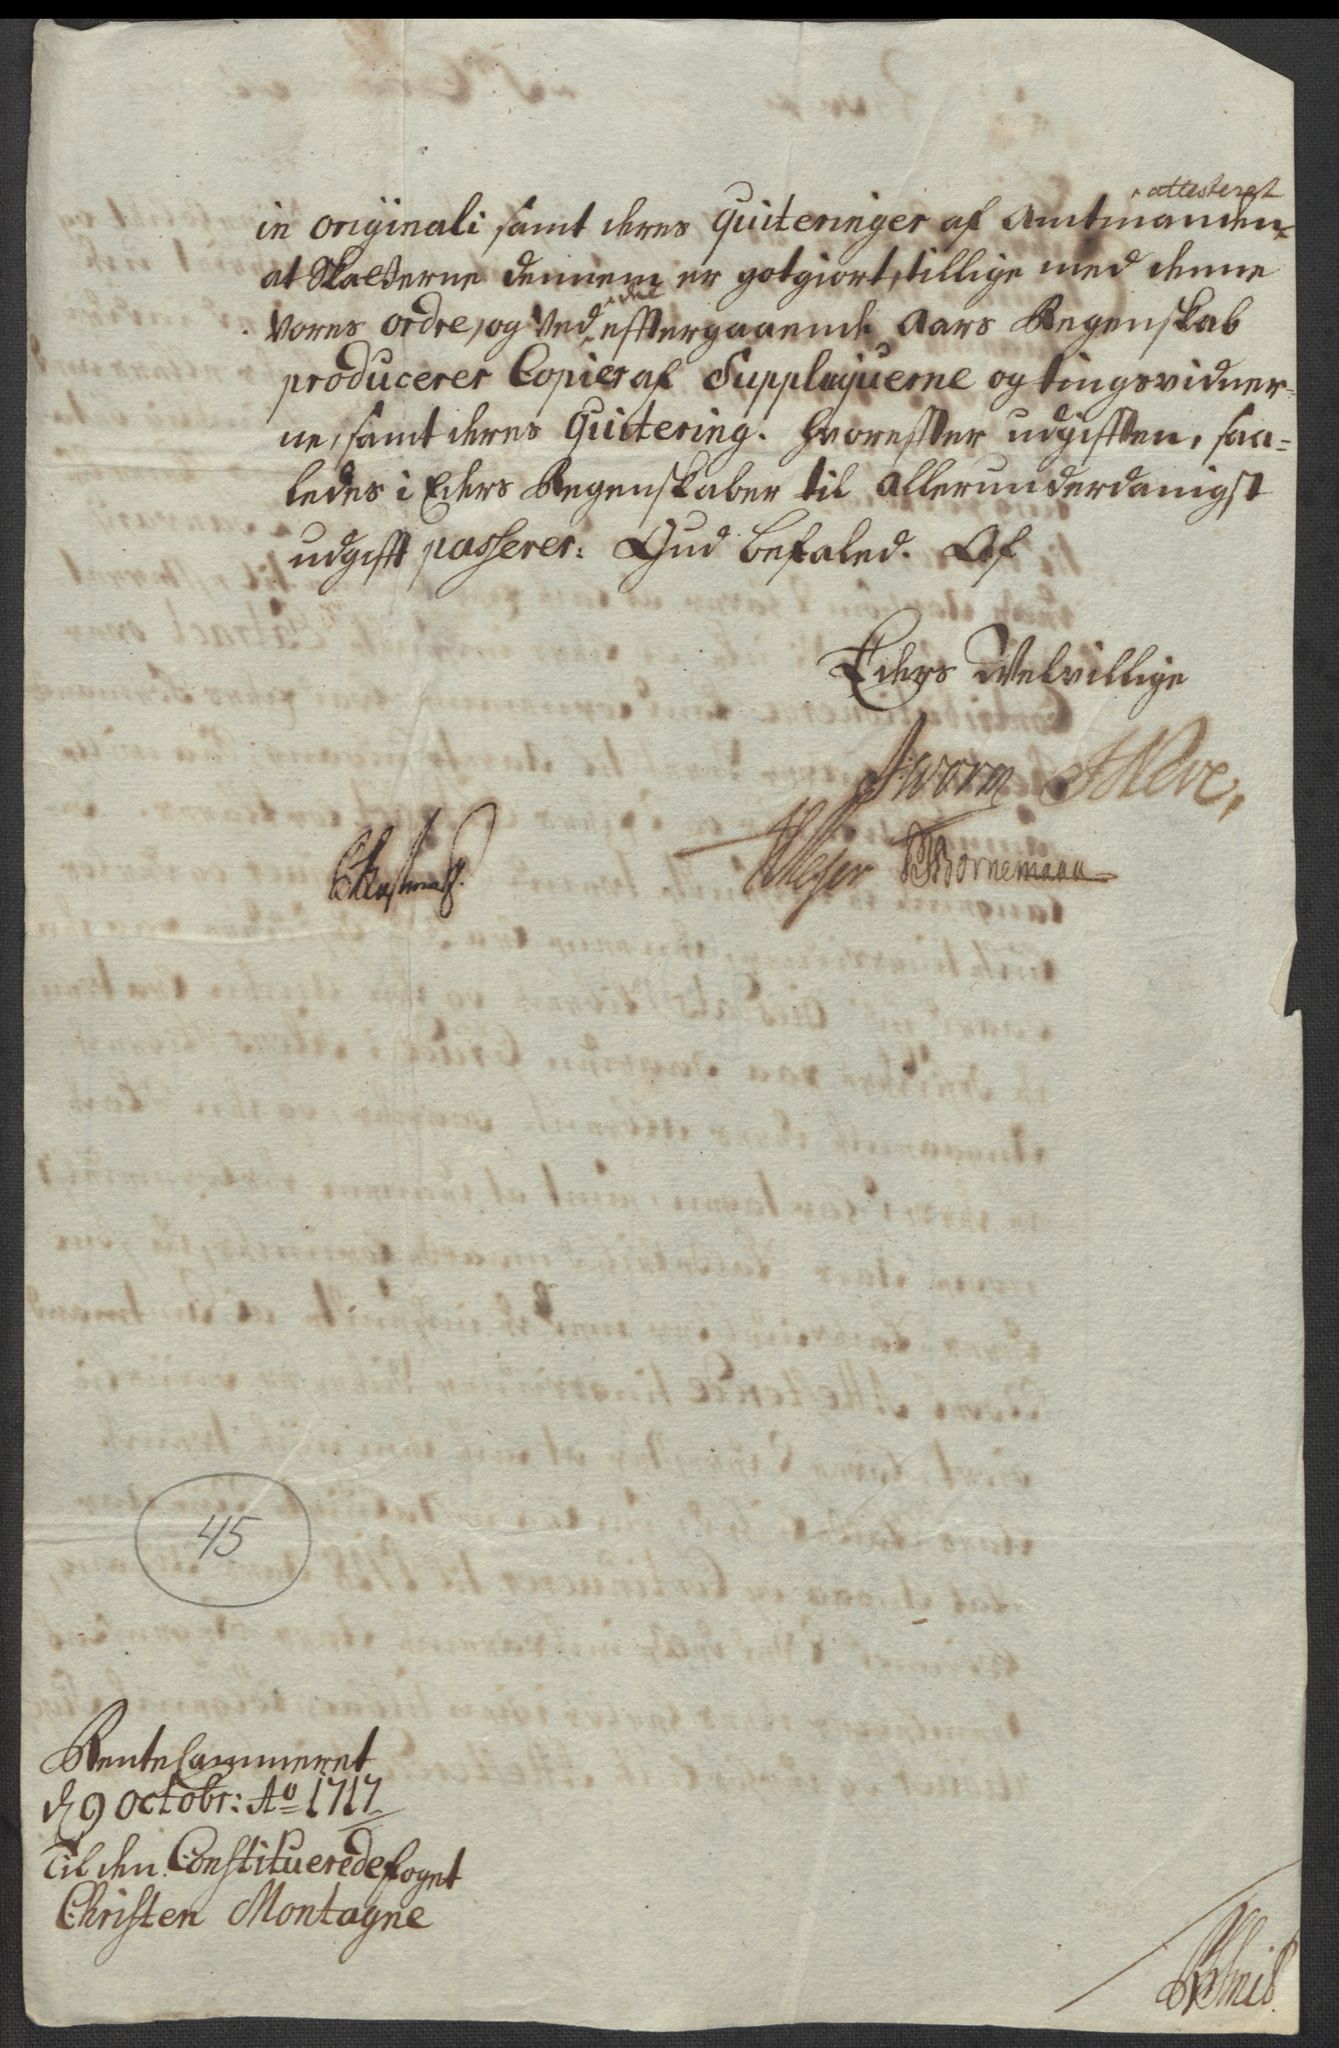 attesteret
in originali samt deres quiteringer af Amtmanden
at Skatterne dennem er gotgiort, tillige med denne
vores ordre, og ved det efftergaaende Aars Regenskab
producerer Copier af Suppliquerne og tingsvidner-
ne, samt deres quitering. Hvoreffter udgifften, saa-
ledes i Eders Regenskaber til allerunderdanigst
udgifft passerer. Gud befaled. Af
Eders Velvillige
JWorm
Meyer Bornemann
45
Rente Cammeret
d 9 Octobr: Ao 1717
Til den Constituerede foget
Christen Montagne